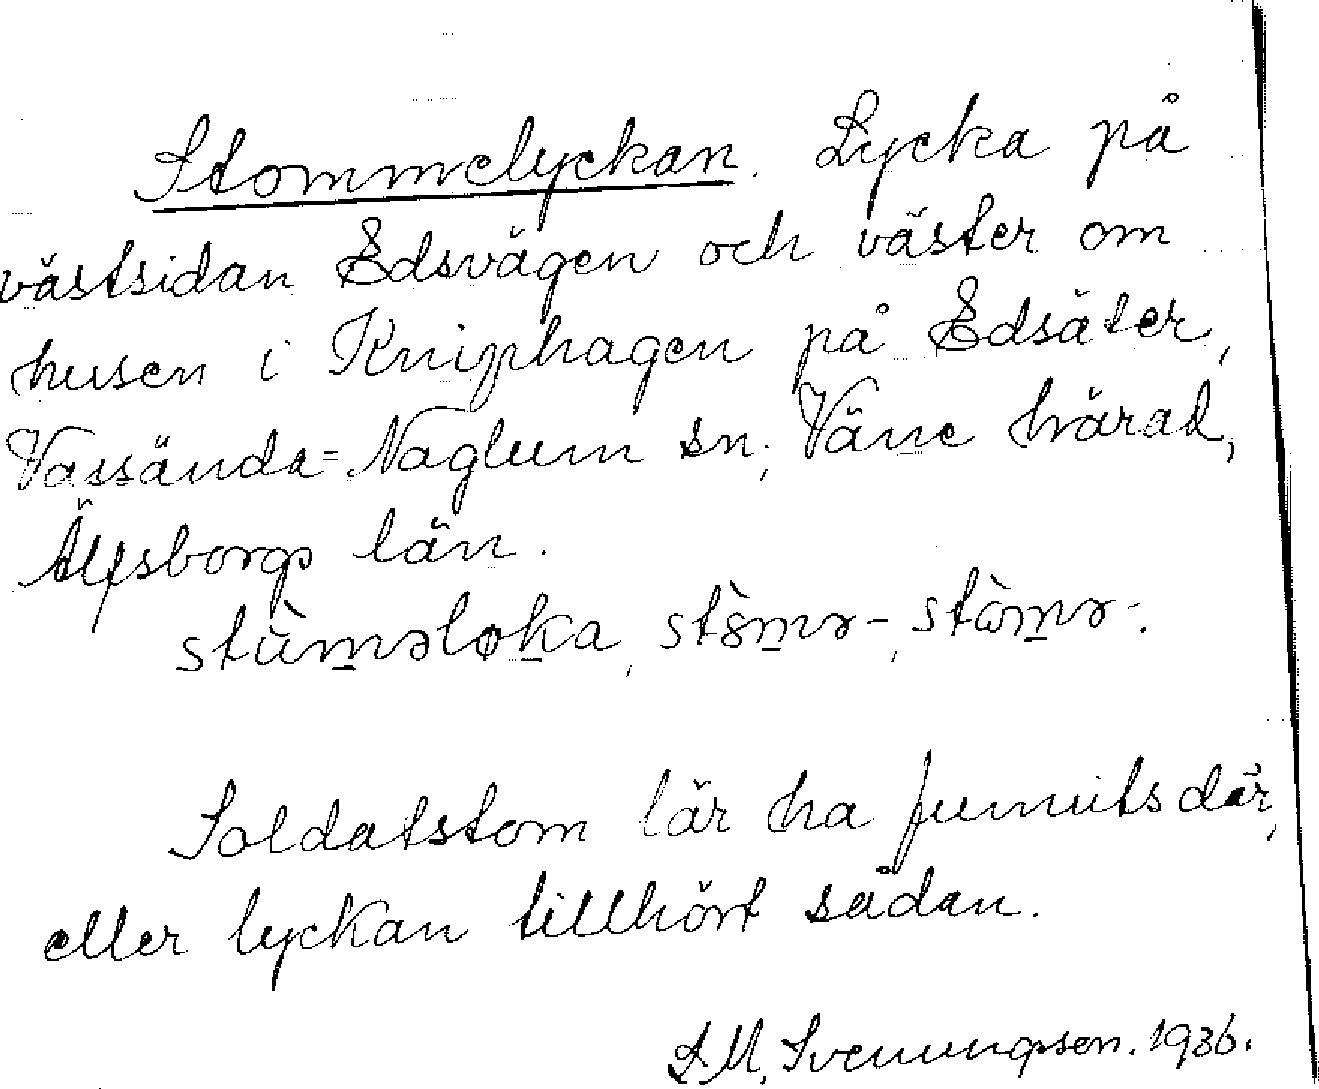 Stommelyckan. Lycka på
västsidan Edsvägen och väster om
husen i Kniphagen på Edsäter,
Vassända=Naglum sn, Väne härad,
Älfsborgs län.
stùm̲əløk̲a, stòm̲ə-, stὼm̲ə-.
Soldatstom lär ha funnits där,
eller lyckan tillhört sådan.
S.M. Svenungsson. 1936.